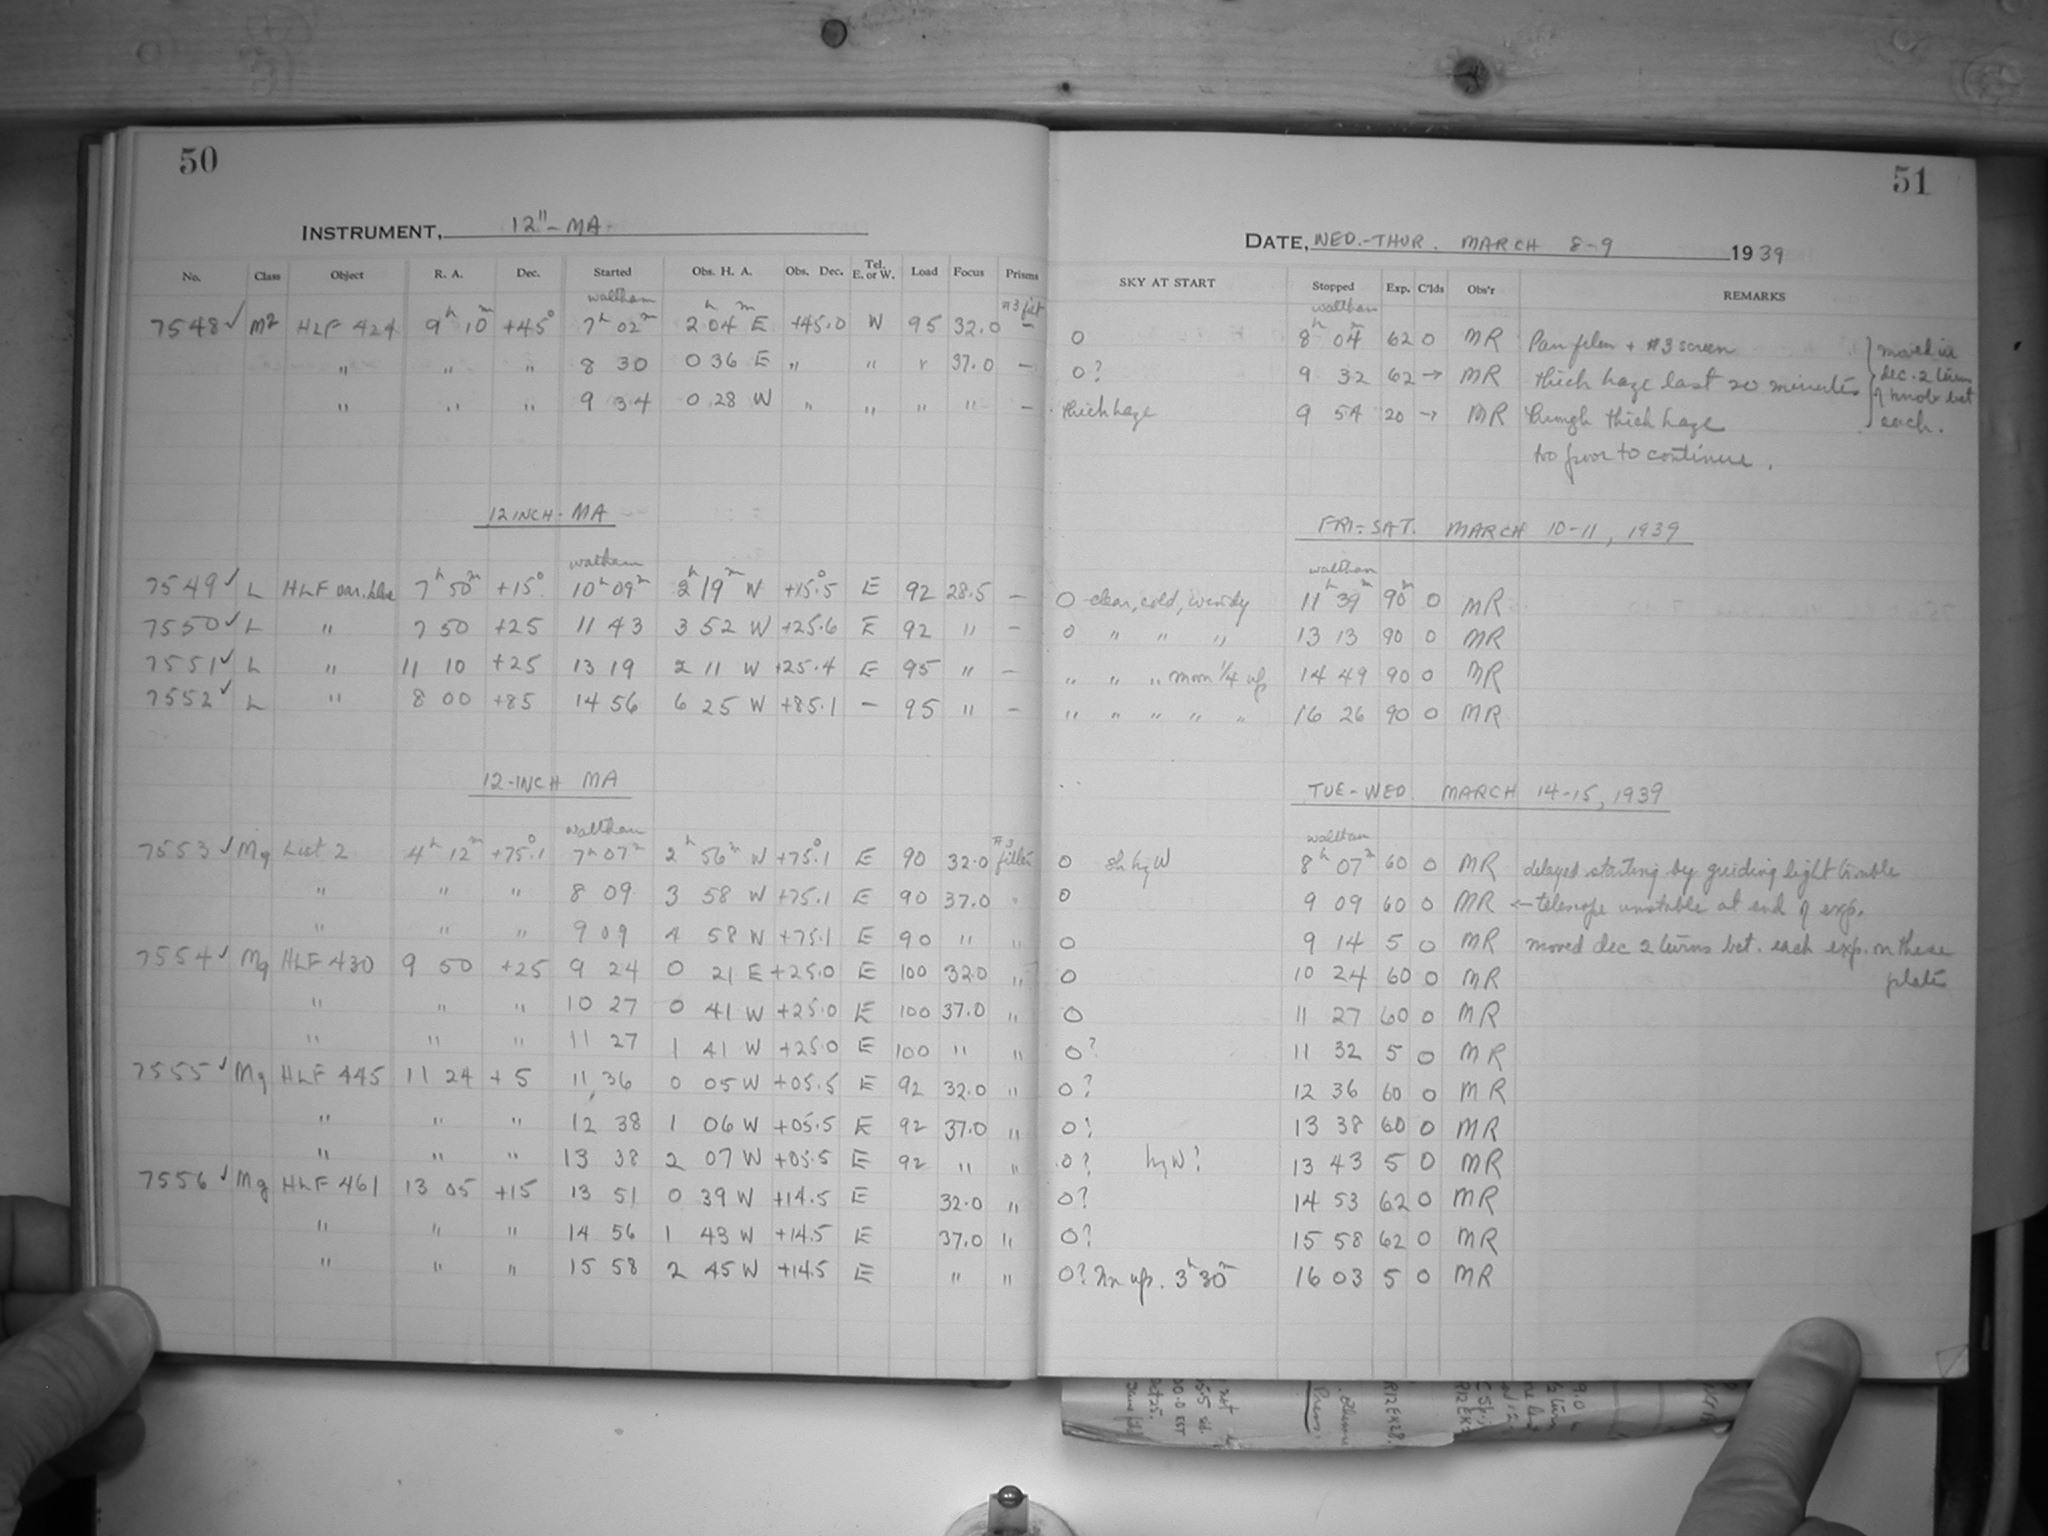 50
INSTRUMENT, 12"-MA
No. Class Object R. A. Dec. Started Obs. H. A. Obs. Dec. Tel. E. or W. Load Focus Prisms
waltham
7548✓ M2 HLF 424 9h 10m +45° 7h 02m 2h 04m E +45.0 W 95 32.0 —
" " " 8 30 0 36 E " " " 37.0 —
" " " 9 34 0 28 W " " " " —
12 INCH - MA
waltham
7549✓ L HLF 7h 50m +15° 10h 09m 2h 19m W +15.5 E 92 28.5 —
7550✓ L " 7 50 +25 11 43 3 52 W +25.6 E 92 " —
7551✓ L " 11 10 +25 13 19 2 11 W +25.4 E 95 " —
7552✓ L " 8 00 +85 14 56 6 25 W +85.1 — 95 " —
12-INCH MA
waltham
7553✓ Mg List 2 4h 12m +75°.1 7h 07m 2h 56m W +75°.1 E 90 32.0 #3 filter
" " " 8 09 3 58 W +75.1 E 90 37.0 "
" " " 9 09 4 58 W +75.1 E 90 " "
7554✓ Mg HLF 430 9 50 +25 9 24 0 21 E +25.0 E 100 32.0 "
" " " 10 27 0 41 W +25.0 E 100 37.0 "
" " " 11 27 1 41 W +25.0 E 100 " "
7555✓ Mg HLF 445 11 24 + 5 11 36 0 05 W +05.5 E 92 32.0 "
" " " 12 38 1 06 W +05.5 E 92 37.0 "
" " " 13 38 2 07 W +05.5 E 92 " "
7556✓ Mg HLF 461 13 05 +15 13 51 0 39 W +14.5 E 32.0 "
" " " 14 56 1 43 W +14.5 E 37.0 "
" " " 15 58 2 45 W +14.5 E " "
51
DATE, WED.-THUR. MARCH 8-9 1939
SKY AT START Stopped Exp. C'lds Obs'r REMARKS
waltham
0 8h 04m 62 0 MR Pan film + #3 screen
0? 9 32 62 → MR thick haze last 20 minutes
thick haze 9 54 20 → MR through thick haze
too poor to continue.
moved in
dec. 2 turns
of knob bet
each.
FRI-SAT. MARCH 10-11, 1939
waltham
0 clear, cold, windy 11h 39m 90m 0 MR
0 " " " 13 13 90 0 MR
" " " moon 1/4 up 14 49 90 0 MR
" " " " " 16 26 90 0 MR
TUE-WED MARCH 14-15, 1939
waltham
0 sh hy W 8h 07m 60 0 MR delayed starting by guiding light trouble
0 9 09 60 0 MR ← telescope unstable at end of exp.
0 9 14 5 0 MR moved dec 2 turns bet. each exp. on these
plates
0 10 24 60 0 MR
0 11 27 60 0 MR
0? 11 32 5 0 MR
0? 12 36 60 0 MR
0? 13 38 60 0 MR
0? hy W? 13 43 5 0 MR
0? 14 53 62 0 MR
0? 15 58 62 0 MR
0? up. 3h 30m 16 03 5 0 MR